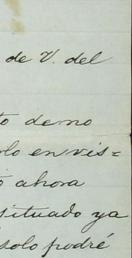 de V. del
to de no
olo en vis=
o ahora
situado ya
solo podré